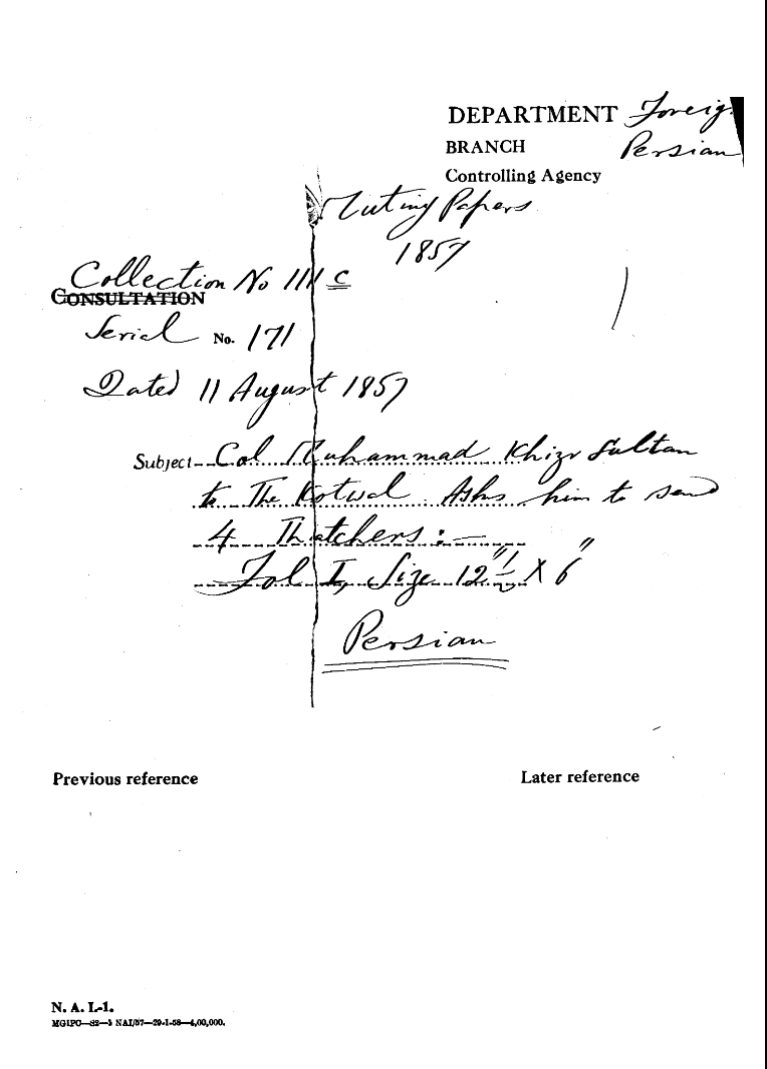 DEPARTMENT Foreig
BRANCH Persian
Controlling Agency
Mutiny Papers
1857
Collection No 111 C
CONSULTATION
Serial No. 171
Dated 11 August 1857
Subject Col Muhammad Khizr Sultan
to The Kotwal Asks him to send
4 Thatchers :—
Fol I, Size 12"½ X 6"
Persian
Previous reference Later reference
N. A. I.-1.
MGIPC—S2—5 NAI/57—29-1-58—4,00,000.